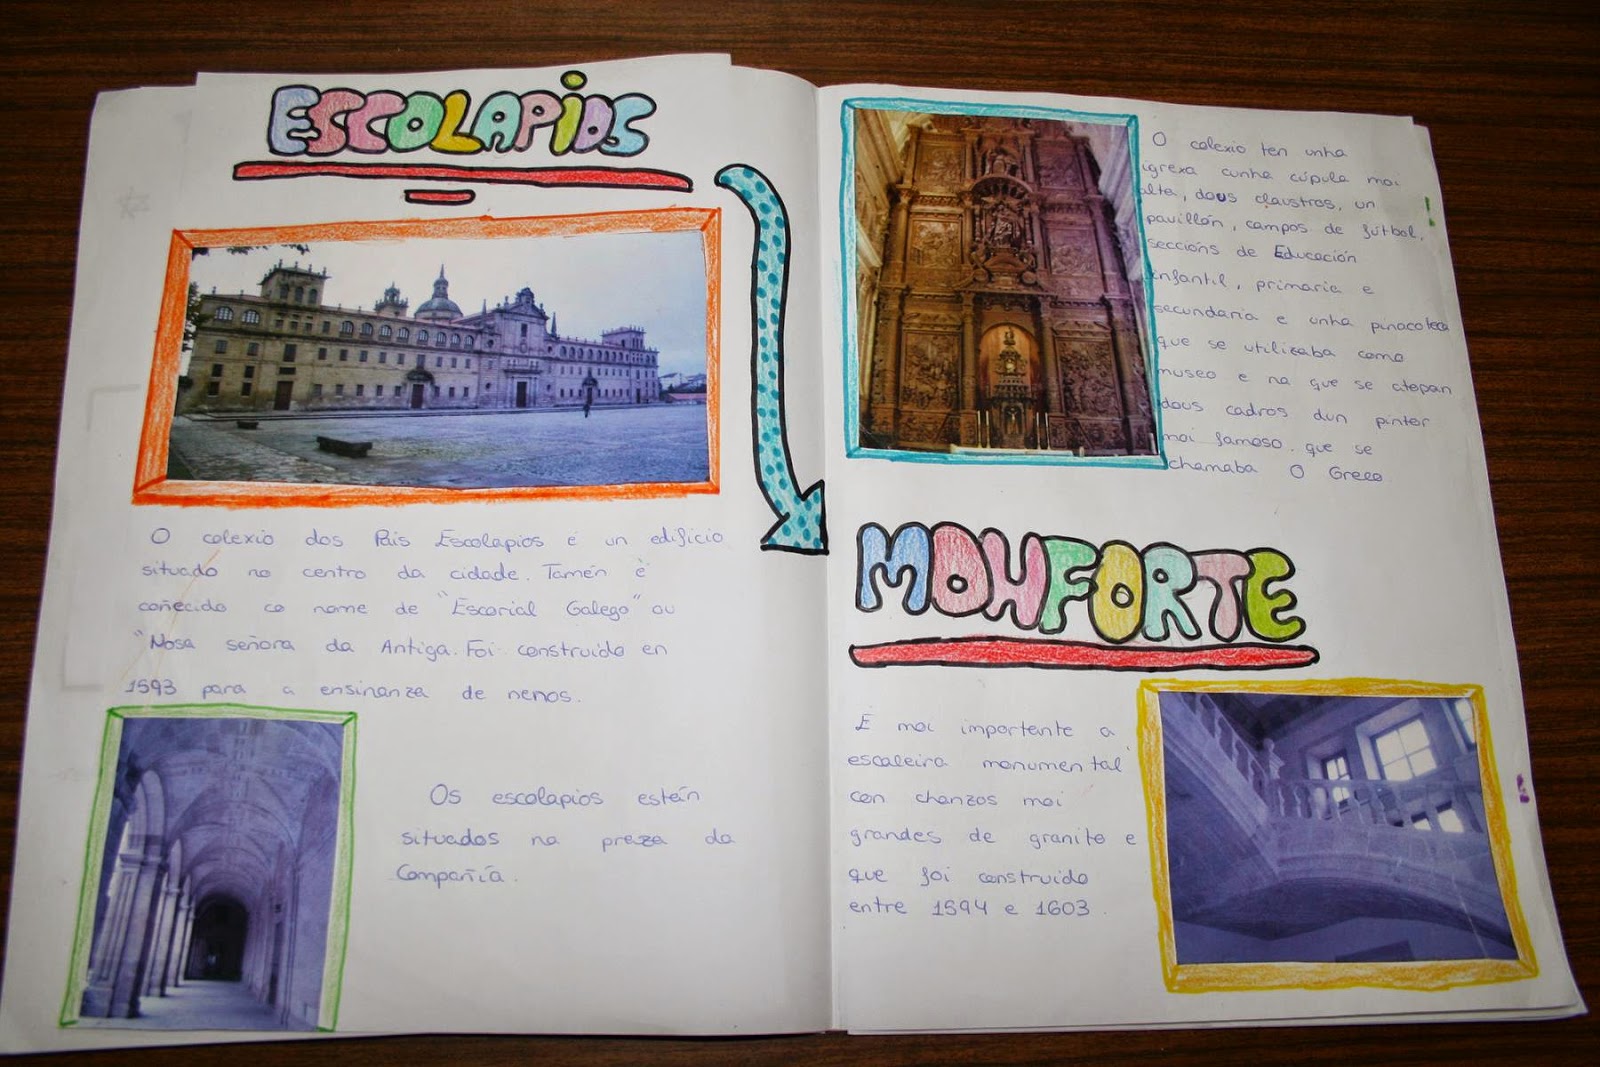 ESCOLAPIOS
O colexio dos Pais Escolapios é un edificio
situado no centro da cidade. Tamén è
coñecido co nome de "Escorial Galego" ou
"Nosa señora da Antiga. Foi construido en
1593 para a ensinanza de nenos.
Os escolapios están
situados na praza da
Compañía.
O colexio ten unha
igrexa cunha cúpula moi
alta, dous claustros, un
pavillón, campos de fútbol,
seccións de Educación
infantil, primaria e
secundaria e unha pinacoteca
que se utilizaba como
museo e na que se atopan
dous cadros dun pintor
moi famoso que se
chamaba O Greco
MONFORTE
É moi importante a
escaleira monumental
con chanzos moi
grandes de granito e
que foi construido
entre 1594 e 1603.